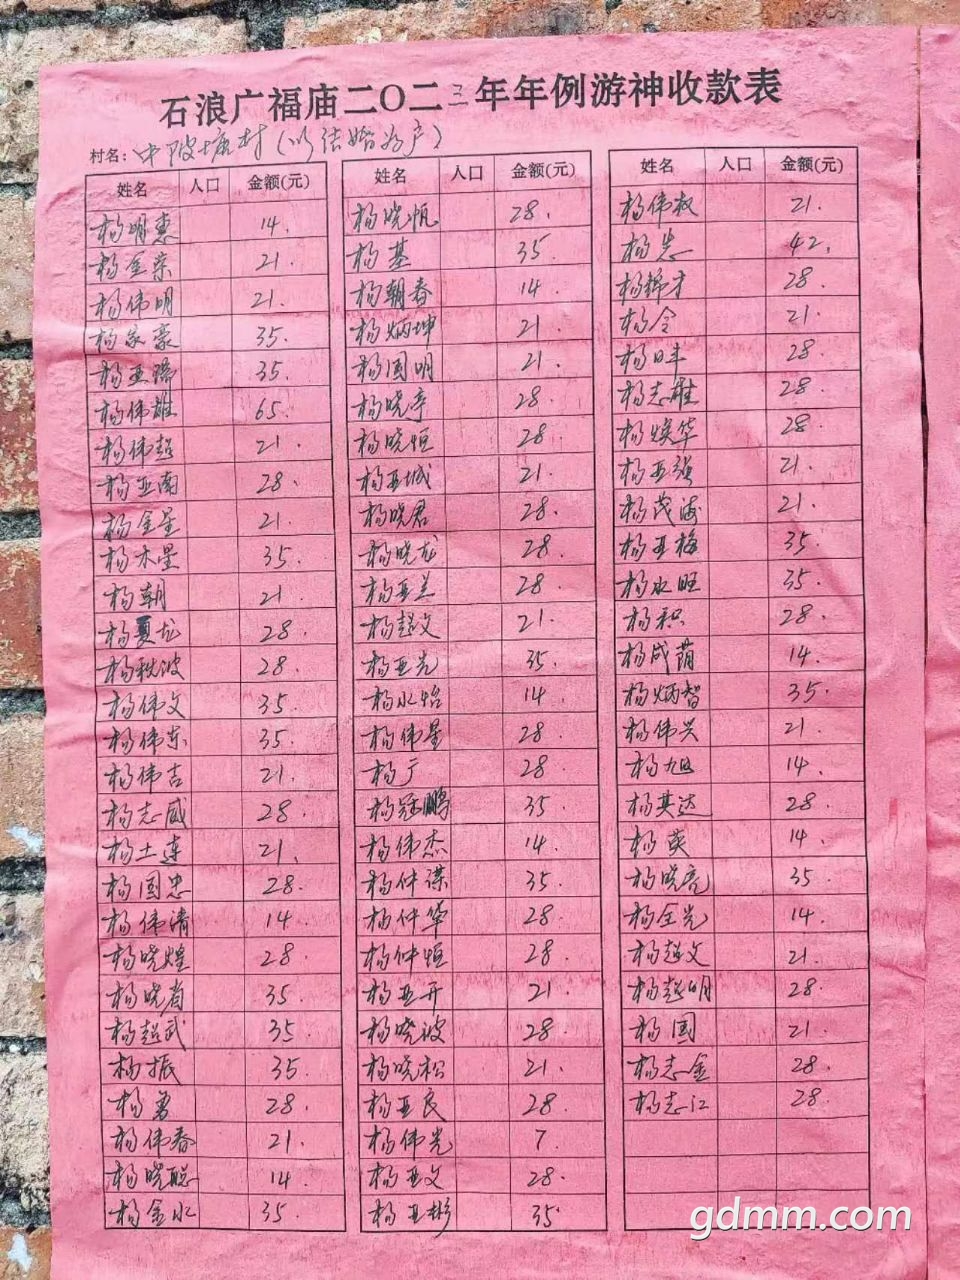 石浪广福庙二〇二三年年例游神收款表
村名：中陂塘村（以结婚为户）
姓名 人口 金额(元)
杨明惠 14.
杨金荣 21.
杨伟明 21.
杨家豪 35.
杨亚瑞 35.
杨伟雄 65.
杨伟超 21.
杨亚南 28.
杨金星 21.
杨木星 35.
杨朝 21.
杨夏龙 28.
杨秋波 28.
杨伟文 35.
杨伟东 35.
杨伟吉 21.
杨志威 28.
杨土连 21.
杨国忠 28.
杨伟清 14.
杨晓煌 28.
杨晓省 35.
杨超武 35.
杨振 35.
杨勇 28.
杨伟春 21.
杨晓聪 14.
杨金水 35.
姓名 人口 金额(元)
杨晓帆 28.
杨基 35.
杨朝春 14.
杨炳坤 21.
杨国明 21.
杨晓亭 28.
杨晓恒 28.
杨亚城 21.
杨晓君 28.
杨晓龙 28.
杨亚兰 28.
杨超文 21.
杨亚光 35.
杨水怡 14.
杨伟星 28.
杨广 28.
杨冠鹏 35.
杨伟杰 14.
杨仲谋 35.
杨仲华 28.
杨仲恒 28.
杨亚开 21.
杨晓波 28.
杨晓松 21.
杨亚良 28.
杨伟光 7.
杨亚文 28.
杨亚彬 35.
姓名 人口 金额(元)
杨伟权 21.
杨光 42.
杨锦才 28.
杨令 21.
杨日丰 28.
杨志雄 28.
杨焕华 28.
杨亚强 21.
杨茂海 21.
杨亚梅 35.
杨水旺 35.
杨积 28.
杨成荫 14.
杨炳智 35.
杨伟兴 21.
杨旭 14.
杨其达 28.
杨英 14.
杨晓亮 35.
杨全光 14.
杨超文 21.
杨超明 28.
杨国 21.
杨志金 28.
杨志江 28.
gdmm.com